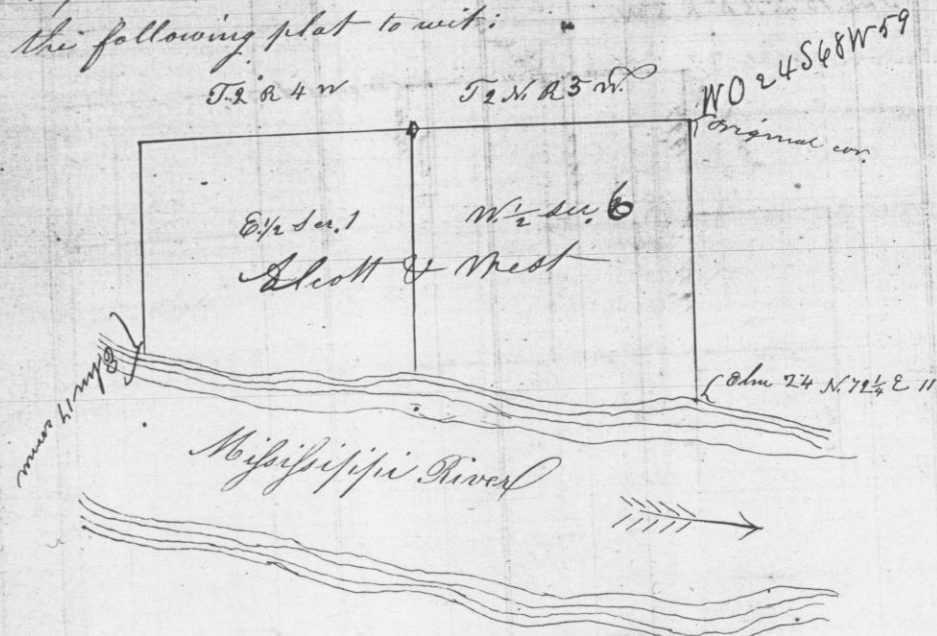 the following plat to wit:
T.2 R 4 W
T 2 N. R 3 W.
W O 24 S 68 W 59
Original cor.
E. 1/2 Sec. 1
W 1/2 Sec. 6
& West
Elm 24 N. 72 1/4 E 11
Elm 14
Mississippi River